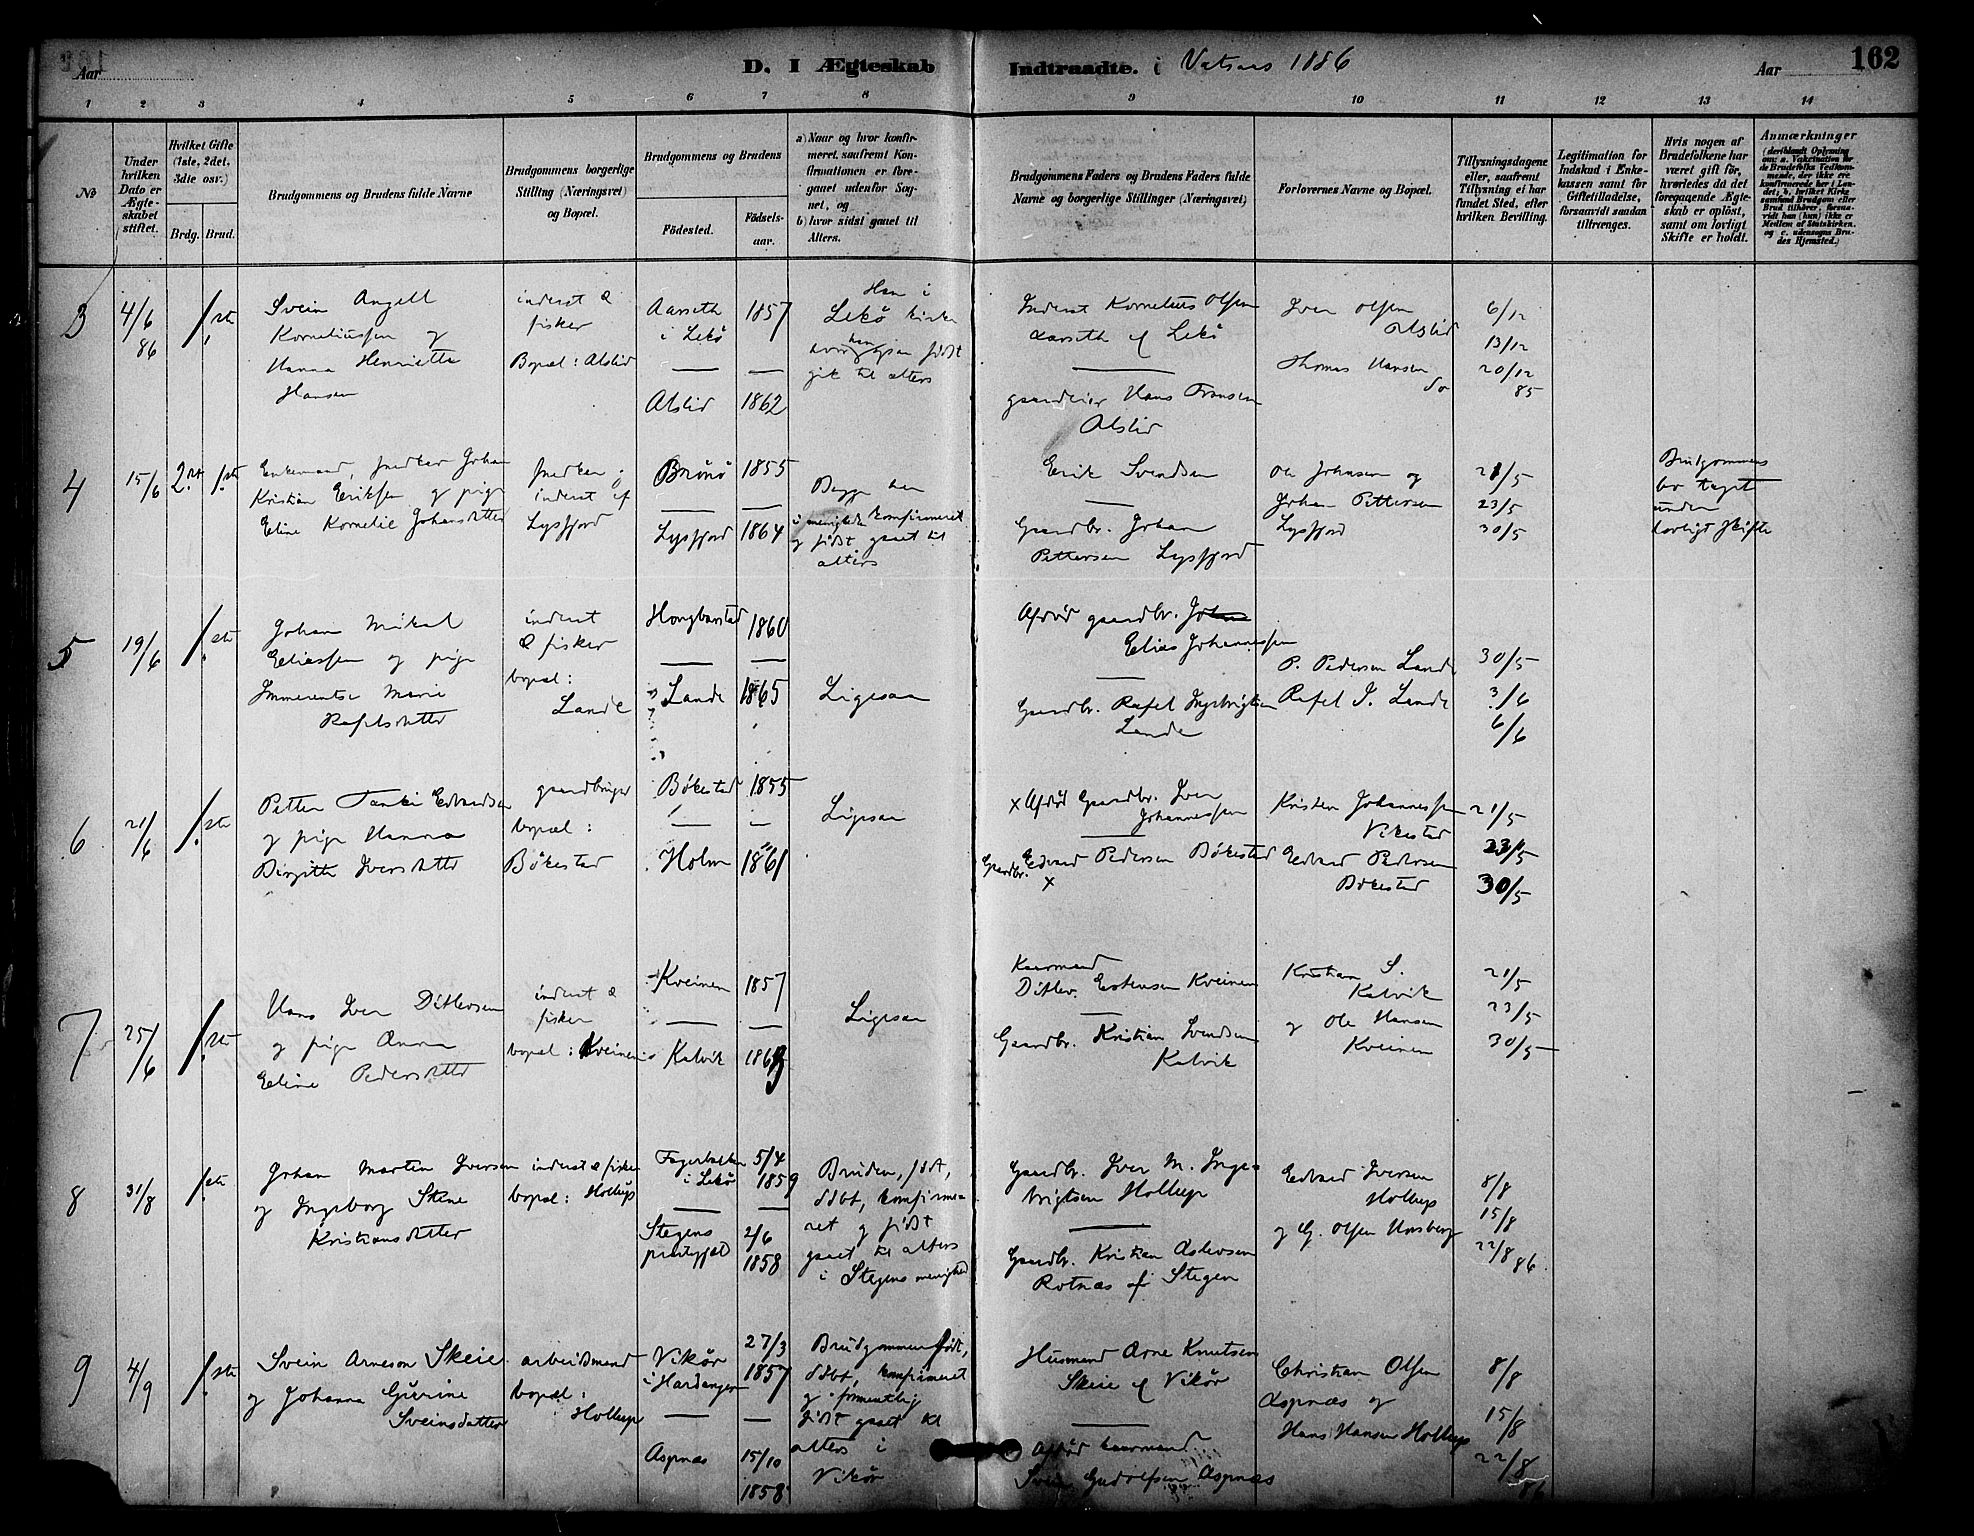 Aar
D. I Ægteskab Indtraadte. i Vatsaas 1886
Aar
162
1 2 3 4 5 6 7 8 9 10 11 12 13 14
No
Under hvilken Dato er Ægteskabet stiftet.
Hvilket Gifte (1ste, 2det, 3die osv.)
Brdg. Brud.
Brudgommens og Brudens fulde Navne
Brudgommens borgerlige Stilling (Næringsvei) og Bopæl.
Brudgommens og Brudens
Fødested.
Fødselsaar.
a) Naar og hvor konfirmeret, saafremt Konfirmationen er foregaaet udenfor Sognet, og
b) hvor sidst gaaet til Alters.
Brudgommens Faders og Brudens Faders fulde Navne og borgerlige Stillinger (Næringsvei)
Forlovernes Navne og Bopæl.
Tillysningsdagene eller, saafremt Tillysning ei har fundet Sted, efter hvilken Bevilling.
Legitimation for Indskud i Enkekassen samt for Giftetilladelse, forsaavidt saadan tiltrænges.
Hvis nogen af Brudefolkene har været gift før, hvorledes da det foregaaende Ægteskab er opløst, samt om lovligt Skifte er holdt.
Anmærkninger
(deriblandt Oplysning om: a. Vakcination for de Brudefolks Vedkommende, der ikke ere konfirmerede her i Landet; b. hvilket Kirkesamfund Brudgom eller Brud tilhører, forsaavidt han (hun) ikke er Medlem af Statskirken, og c. udensogns Brudes Hjemsted.)
3
4/6
86
1ste
Svein Angell
Korneliussen og
Hanna Henrietta
Hansen
inderst &
fisker
Bopæl: Alslid
Aarseth
i Lekø
Alslid
1857
1862
Han i
Lekø kirke
gik til alters
Inderst Kornelius Olsen
Aarseth af Lekø
gaardeier Hans Fransen
Alslid
Iver Olsen
Alslid
Thomas Hansen
do
6/12
13/12
20/12
85
4
15/6
2det 1ste
Enkemand, snedker Johan
Kristian Eriksen og pige
Eline Kornelie Johansdatter
snedker og
inderst af
Lysfjord
Brønø
Lysfjord
1855
1864
Begge her
i menigheden konfirmeret
og sidst gaaet til
alters
Erik Svendsen
Gaardbr. Johan
Pettersen Lysfjord
Ole Johnsen og
Johan Pettersen
Lysfjord
21/5
23/5
30/5
Brudgommens
bo taget
under
lovligt skifte
5
19/6
1ste
Johan Mikal
Eliassen og pige
Immerentse Marie
Rafelsdatter
inderst
& fisker
bopæl:
Lande
Lande
1860
1865
Ligesaa
Afdød gaardbr.
Elias Johannessen
Gaardbr. Rafel Ingebrigtsen
Lande
P. Pedersen Lande
Rafel I. Lande
30/5
3/6
6/6
6
21/6
1ste
Petter Tanke Edvardsen
og pige Hanna
Birgitte Iversdatter
gaardbruger
bopæl:
Bökestad
Bökestad
Holm
1855
1861
Ligesaa
x Afdød Gaardbr. Iver
Johannessen
Gaardbr. Edvard Pedersen Bökestad
x
Kristen Johannessen
Vikestad
Edvard Pedersen
Bökestad
21/5
23/5
30/5
7
25/6
1ste
Hans Iver Ditlevsen
og pige Anna
Eline Pedersdatter
inderst &
fisker
bopæl: Kveinen
Kveinen
Kalvik
1857
Ligesaa
Kaarmand
Ditlev Estensen Kveinen
Gaardbr. Kristian Svendsen
Kalvik
Kristian S.
Kalvik
og Ole Hansen
Kveinen
21/5
23/5
30/5
8
31/8
1ste
Johan Martin Iversen
og Ingeborg Stene
Kristiansdatter
inderst & fisker
bopæl: Hollup
Fagerbakken
i Lekø
Stegens
præstegjæld
5/4
1859
2/6
1858
Bruden, født,
døbt, konfirmeret
og sidst
gaaet til alters
i Stegens menighed
Gaardbr. Iver M. Ingebrigtsen
Hollup
Gaardbr. Kristian Aslevsen
Rotnæs af Stegen
Edvard Iversen
Hollup
og G. Olsen
8/8
15/8
22/8 86.
9
4/9
1ste
Svein Arneson Skeie
og Johanna Gurine
Sveinsdatter
arbeidsmand
bopæl:
Hollup
Vikør
i Hardanger
Aspnæs
27/3
1857
15/10
1858
Brudgommen født,
døbt, konfirmeret
og formentlig
sidst gaaet til
alters i
Vikør
Husmand Arne Knutsen
Skeie af Vikør
Afdød kaarmand
Svein Gudolfsen Aspnæs
Christian Olsen
Aspnæs og
Hans Hansen Hollup
8/8
15/8
22/8
86